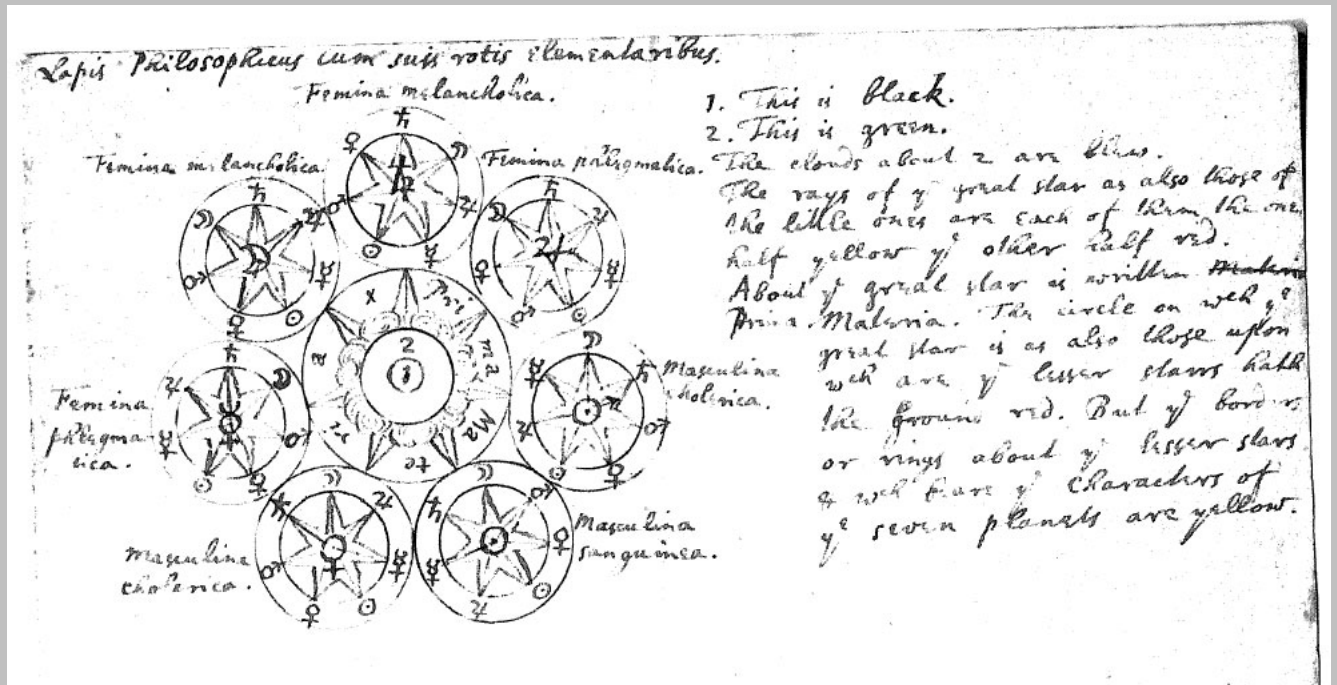 Lapis Philosophicus cum suis rotis elementaribus.
Femina melancholica.
Femina melancholica.
Femina phlegmatica.
Masculina
cholerica.
Masculina
sanguinea.
Masculina
cholerica.
Femina
phlegma-
tica.
Pri
ma
Ma
te
2
1
1. This is black.
2. This is green.
The clouds about 2 are blew.
The rays of yᵉ great star as also those of
the little ones are each of them the one
half yellow yᵉ other half red.
About yᵉ great star is written Materia
Prima Materia. The circle on wch yᵉ
great star is as also those upon
wch are yᵉ lesser starrs hath
the ground red. But yᵉ borders
or rings about yᵉ lesser stars
& wch beare yᵉ characters of
yᵉ seven planets are yellow.